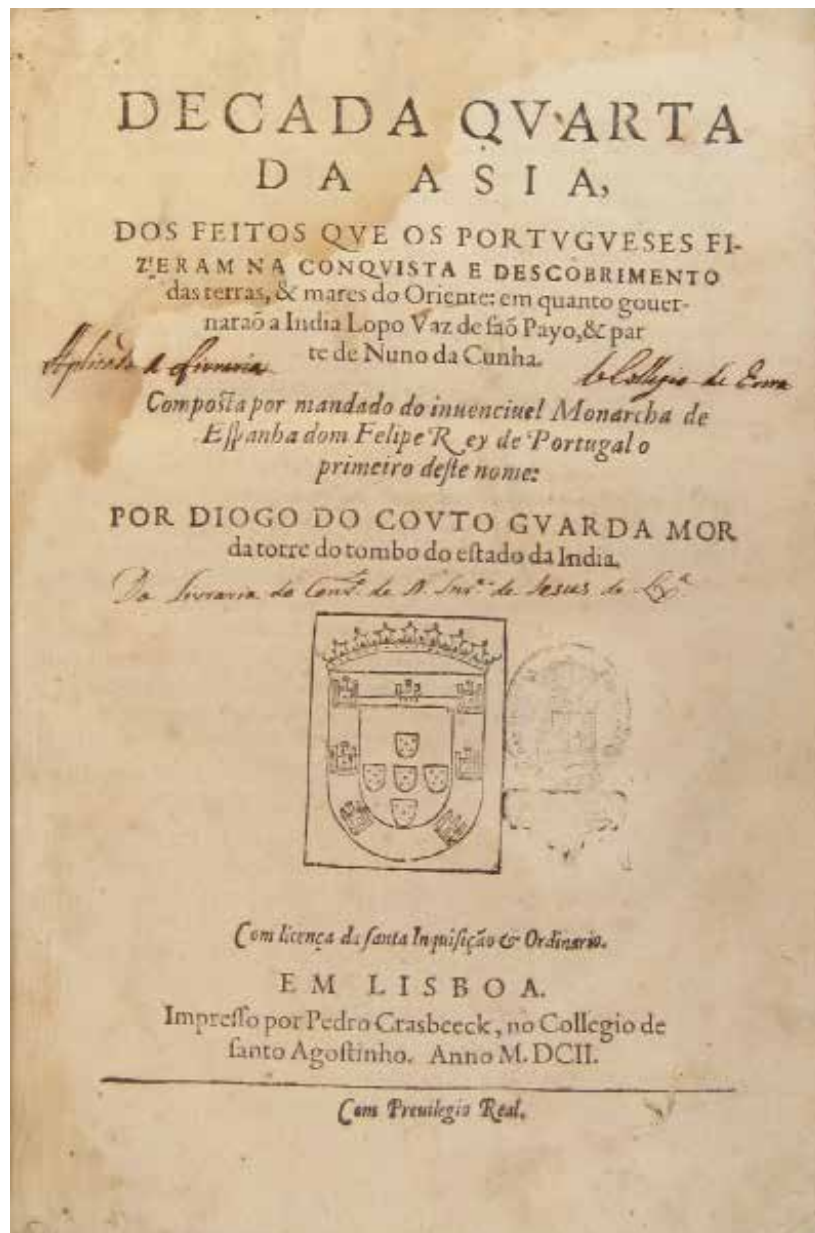 DECADA QVARTA
DA ASIA,
DOS FEITOS QVE OS PORTVGVESES FI-
ZERAM NA CONQVISTA E DESCOBRIMENTO
das terras, & mares do Oriente: em quanto gouer-
naraõ a India Lopo Vaz de saõ Payo, & par
te de Nuno da Cunha.
Aplicado a livraria
do Collegio de
Composta por mandado do inuenciuel Monarcha de
Espanha dom Felipe Rey de Portugal o
primeiro deste nome:
POR DIOGO DO COVTO GVARDA MOR
da torre do tombo do estado da India.
Da livraria do Conv.to de N. Snr.a de Jesus de Lx.a
Com licença da santa Inquisição & Ordinario.
EM LISBOA.
Impresso por Pedro Crasbeeck, no Collegio de
santo Agostinho. Anno M. DCII.
Com Preuilegio Real.